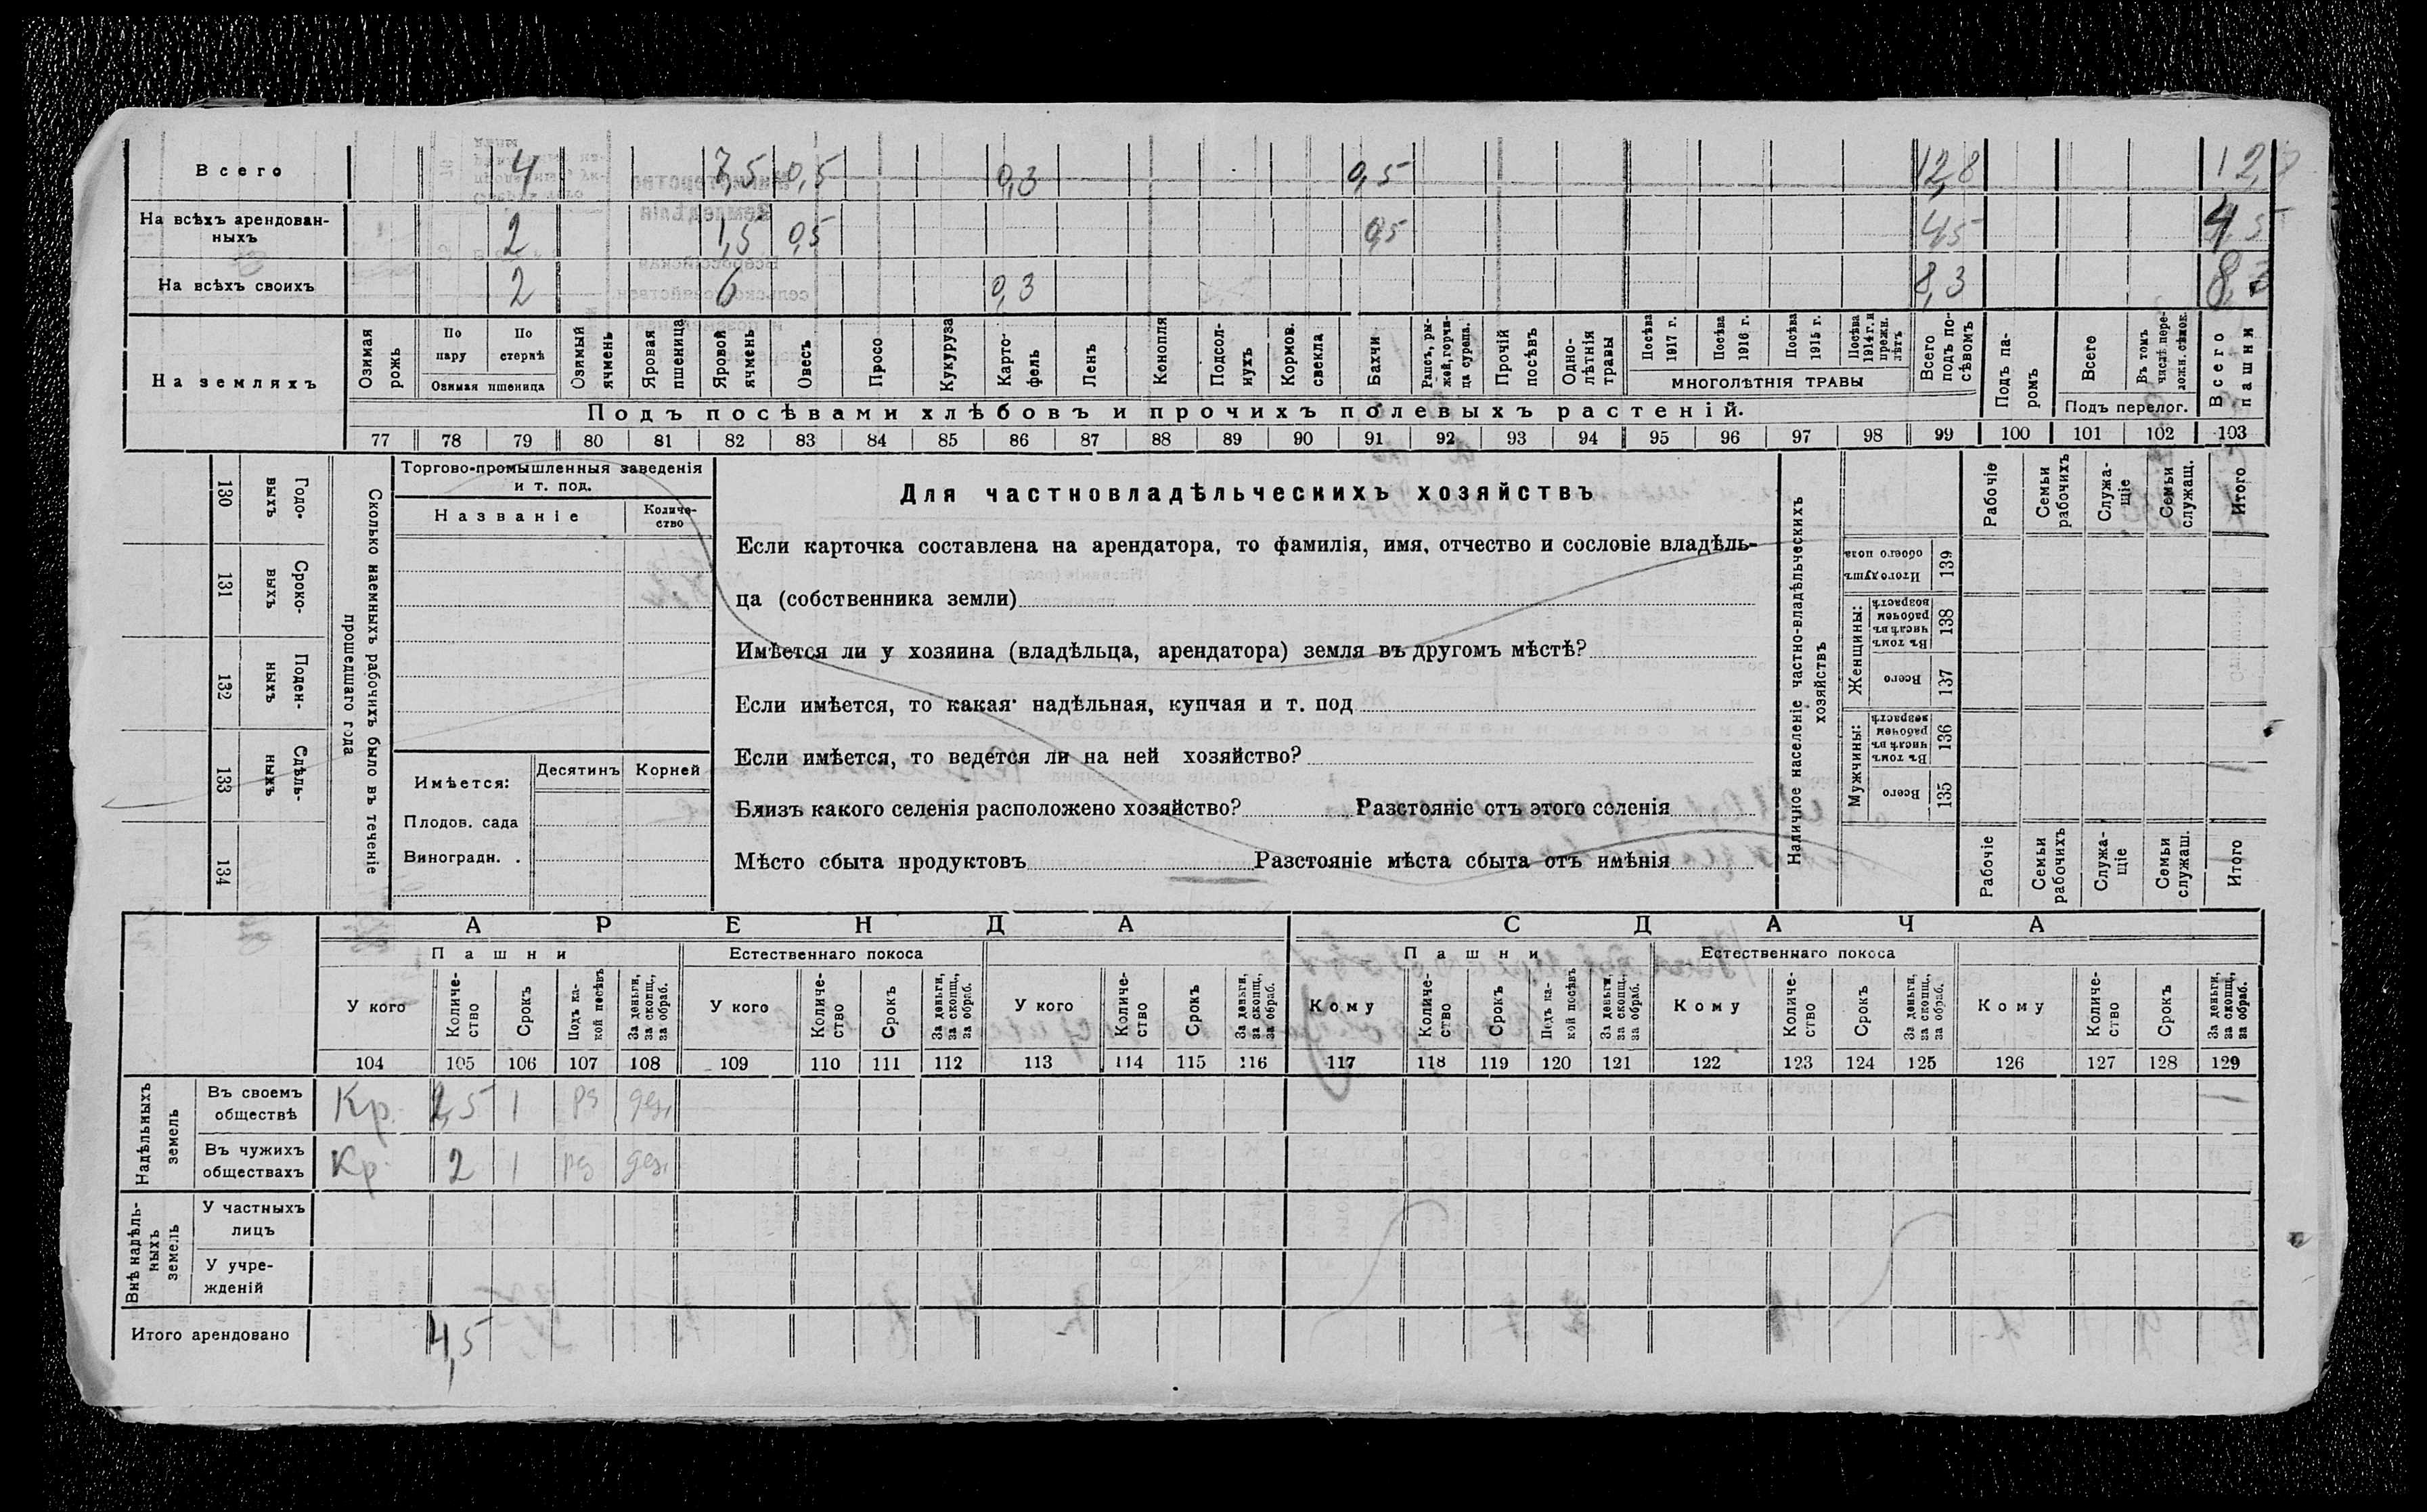 Всего 4 7,5 0,5 0,3 0,5 12,8
На всѣхъ арендован-
ныхъ 2 1,5 0,5 0,5 4,5 4,5
На всѣхъ своихъ 2 6 0,3 8,3 8,3
На земляхъ
Озимая рожь
По пару
По стернѣ
Озимая пшеница
Озимый ячмень
Яровая пшеница
Яровой ячмень
Овесъ
Просо
Кукуруза
Карто-
фель
Ленъ
Конопля
Подсол-
нухъ
Кормов. свекла
Бахчи
Рапсъ, ры-
жей, горчи-
ца сурепа.
Прочій посѣвъ
Одно-
лѣтнія травы
Посѣва 1917 г.
Посѣва 1916 г.
Посѣва 1915 г.
Посѣва 1914 г. и прежн. лѣтъ
МНОГОЛѢТНІЯ ТРАВЫ
Всего подъ по-
сѣвомъ
Подъ па-
ромъ
Всего
Въ томъ числѣ пере-
ложн. сѣнок.
Подъ перелог.
Всего пашни
Подъ посѣвами хлѣбовъ и прочихъ полевыхъ растеній.
77 78 79 80 81 82 83 84 85 86 87 88 89 90 91 92 93 94 95 96 97 98 99 100 101 102 103
Сколько наемныхъ рабочихъ было въ теченіе
прошедшаго года
Годо-
выхъ
130
Сроко-
выхъ
131
Поден-
ныхъ
132
Сдѣль-
ныхъ
133
134
Торгово-промышленныя заведенія
и т. под.
Названіе
Количе-
ство
Имѣется:
Десятинъ
Корней
Плодов. сада
Виноградн. .
Для частновладѣльческихъ хозяйствъ
Если карточка составлена на арендатора, то фамилія, имя, отчество и сословіе владѣль-
ца (собственника земли)
Имѣется ли у хозяина (владѣльца, арендатора) земля въ другомъ мѣстѣ?
Если имѣется, то какая· надѣльная, купчая и т. под
Если имѣется, то ведется ли на ней хозяйство?
Близъ какого селенія расположено хозяйство? Разстояніе отъ этого селенія
Мѣсто сбыта продуктовъ Разстояніе мѣста сбыта отъ имѣнія
Наличное населеніе частно-владѣльческихъ
хозяйствъ
Рабочіе
Семьи рабочихъ
Служа-
щіе
Семьи служащ.
Итого
Итого душъ обоего пола
139
Женщины:
Въ томъ числѣ въ рабочем возрастѣ
138
Всего
137
Мужчины:
Въ томъ числѣ въ рабочем возрастѣ
136
Всего
135
Рабочіе
Семьи рабочихъ
Служа-
щіе
Семьи служащ.
Итого
АРЕНДА
СДАЧА
Пашни
Естественнаго покоса
Пашни
Естественнаго покоса
У кого
Количе-
ство
Срокъ
Подъ ка-
кой посѣвъ
За деньги, за скопщ., за обраб.
У кого
Количе-
ство
Срокъ
За деньги, за скопщ., за обраб.
У кого
Количе-
ство
Срокъ
За деньги, за скопщ., за обраб.
Кому
Количе-
ство
Срокъ
Подъ ка-
кой посѣвъ
За деньги, за скопщ., за обраб.
Кому
Количе-
ство
Срокъ
За деньги, за скопщ., за обраб.
Кому
Количе-
ство
Срокъ
За деньги, за скопщ., за обраб.
104 105 106 107 108 109 110 111 112 113 114 115 116 117 118 119 120 121 122 123 124 125 126 127 128 129
Надѣльныхъ земель
Въ своемъ
обществѣ
Кр. 2,5 1
Въ чужихъ
обществахъ
Кр. 2 1
Внѣ надѣль-
ныхъ
земель
У частныхъ
лицъ
У учре-
жденій
Итого арендовано 4,5